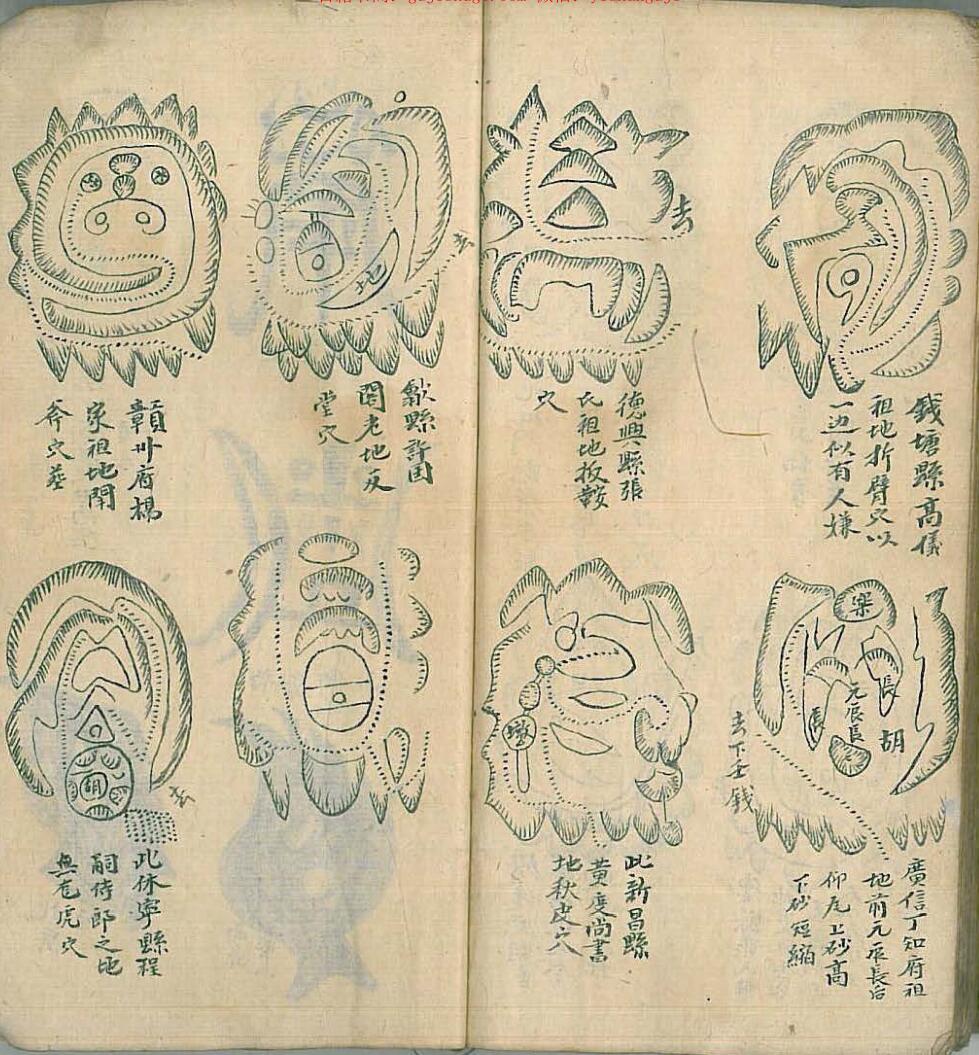 錢塘縣高儀
祖地折臂穴以
一边似有人嫌
德興縣張
氏祖地板鼓
穴
去
歙縣許国
閣老地反
堂穴
地
贛州府楊
家祖地開
斧穴
廣信丁知府祖
地前元辰長后
仰瓦上砂高
下砂短縮
梁
長
元辰長
胡
去下手
錢
此新昌縣
黃度尚書
地秋皮穴
此休寧縣程
嗣侍郎之地
無龍虎穴
胡